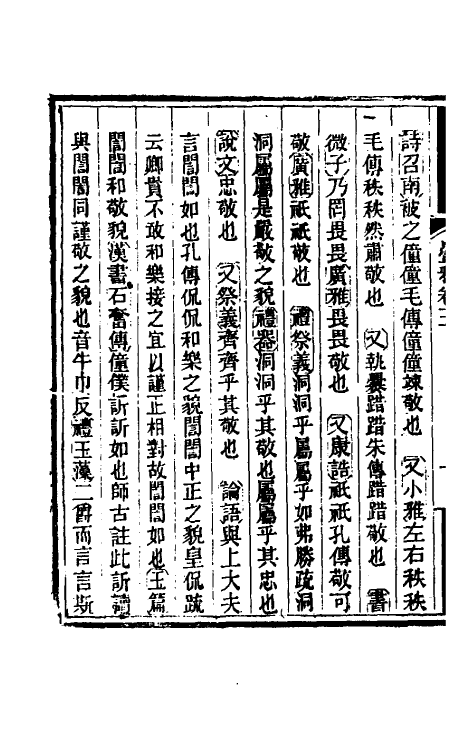 詩召南被之僮僮毛傳僮僮竦敬也　又小雅左右秩秩
毛傳秩秩然肅敬也　又執爨踖踖朱傳踖踖敬也　書
微子乃罔畏畏廣雅畏畏敬也　又康誥祗祗孔傳敬可
敬廣雅祗祗敬也　禮祭義洞洞乎屬屬乎如弗勝疏洞
洞屬屬是嚴敬之貌禮器洞洞乎其敬也屬屬乎其忠也
說文忠敬也　又祭義齊齊乎其敬也　論語與上大夫
言誾誾如也孔傳侃侃和樂之貌誾誾中正之貌皇侃疏
云卿貴不敢和樂接之宜以謹正相對故誾誾如也玉篇
誾誾和敬貌漢書石奮傳僮僕訢訢如也師古註此訢讀
與誾誾同謹敬之貌也音牛巾反禮玉藻二爵而言言斯